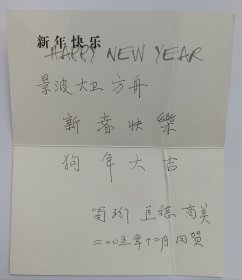 新年快乐
HAPPY NEW YEAR
景波 大卫 方舟
新春快樂
狗年大吉
商美
二00五年十二月同賀